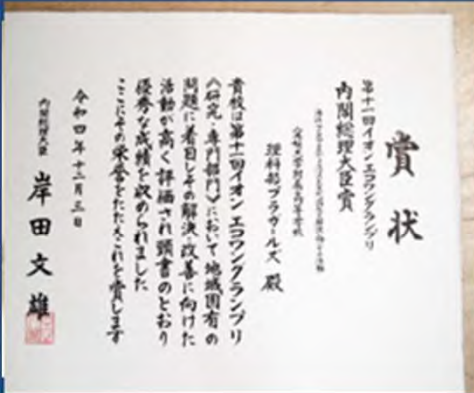 賞状
第十一回イオンエコワングランプリ
内閣総理大臣賞
理科部プラガールズ 殿
貴校は第十一回イオンエコワングランプリ
(研究・専門部門)において地域固有の
問題に着目しその解決・改善に向けた
活動が高く評価され頭書のとおり
優秀な成績を収められました
ここにその栄誉をたたえこれを賞します
令和四年十二月三日
内閣総理大臣 岸田文雄